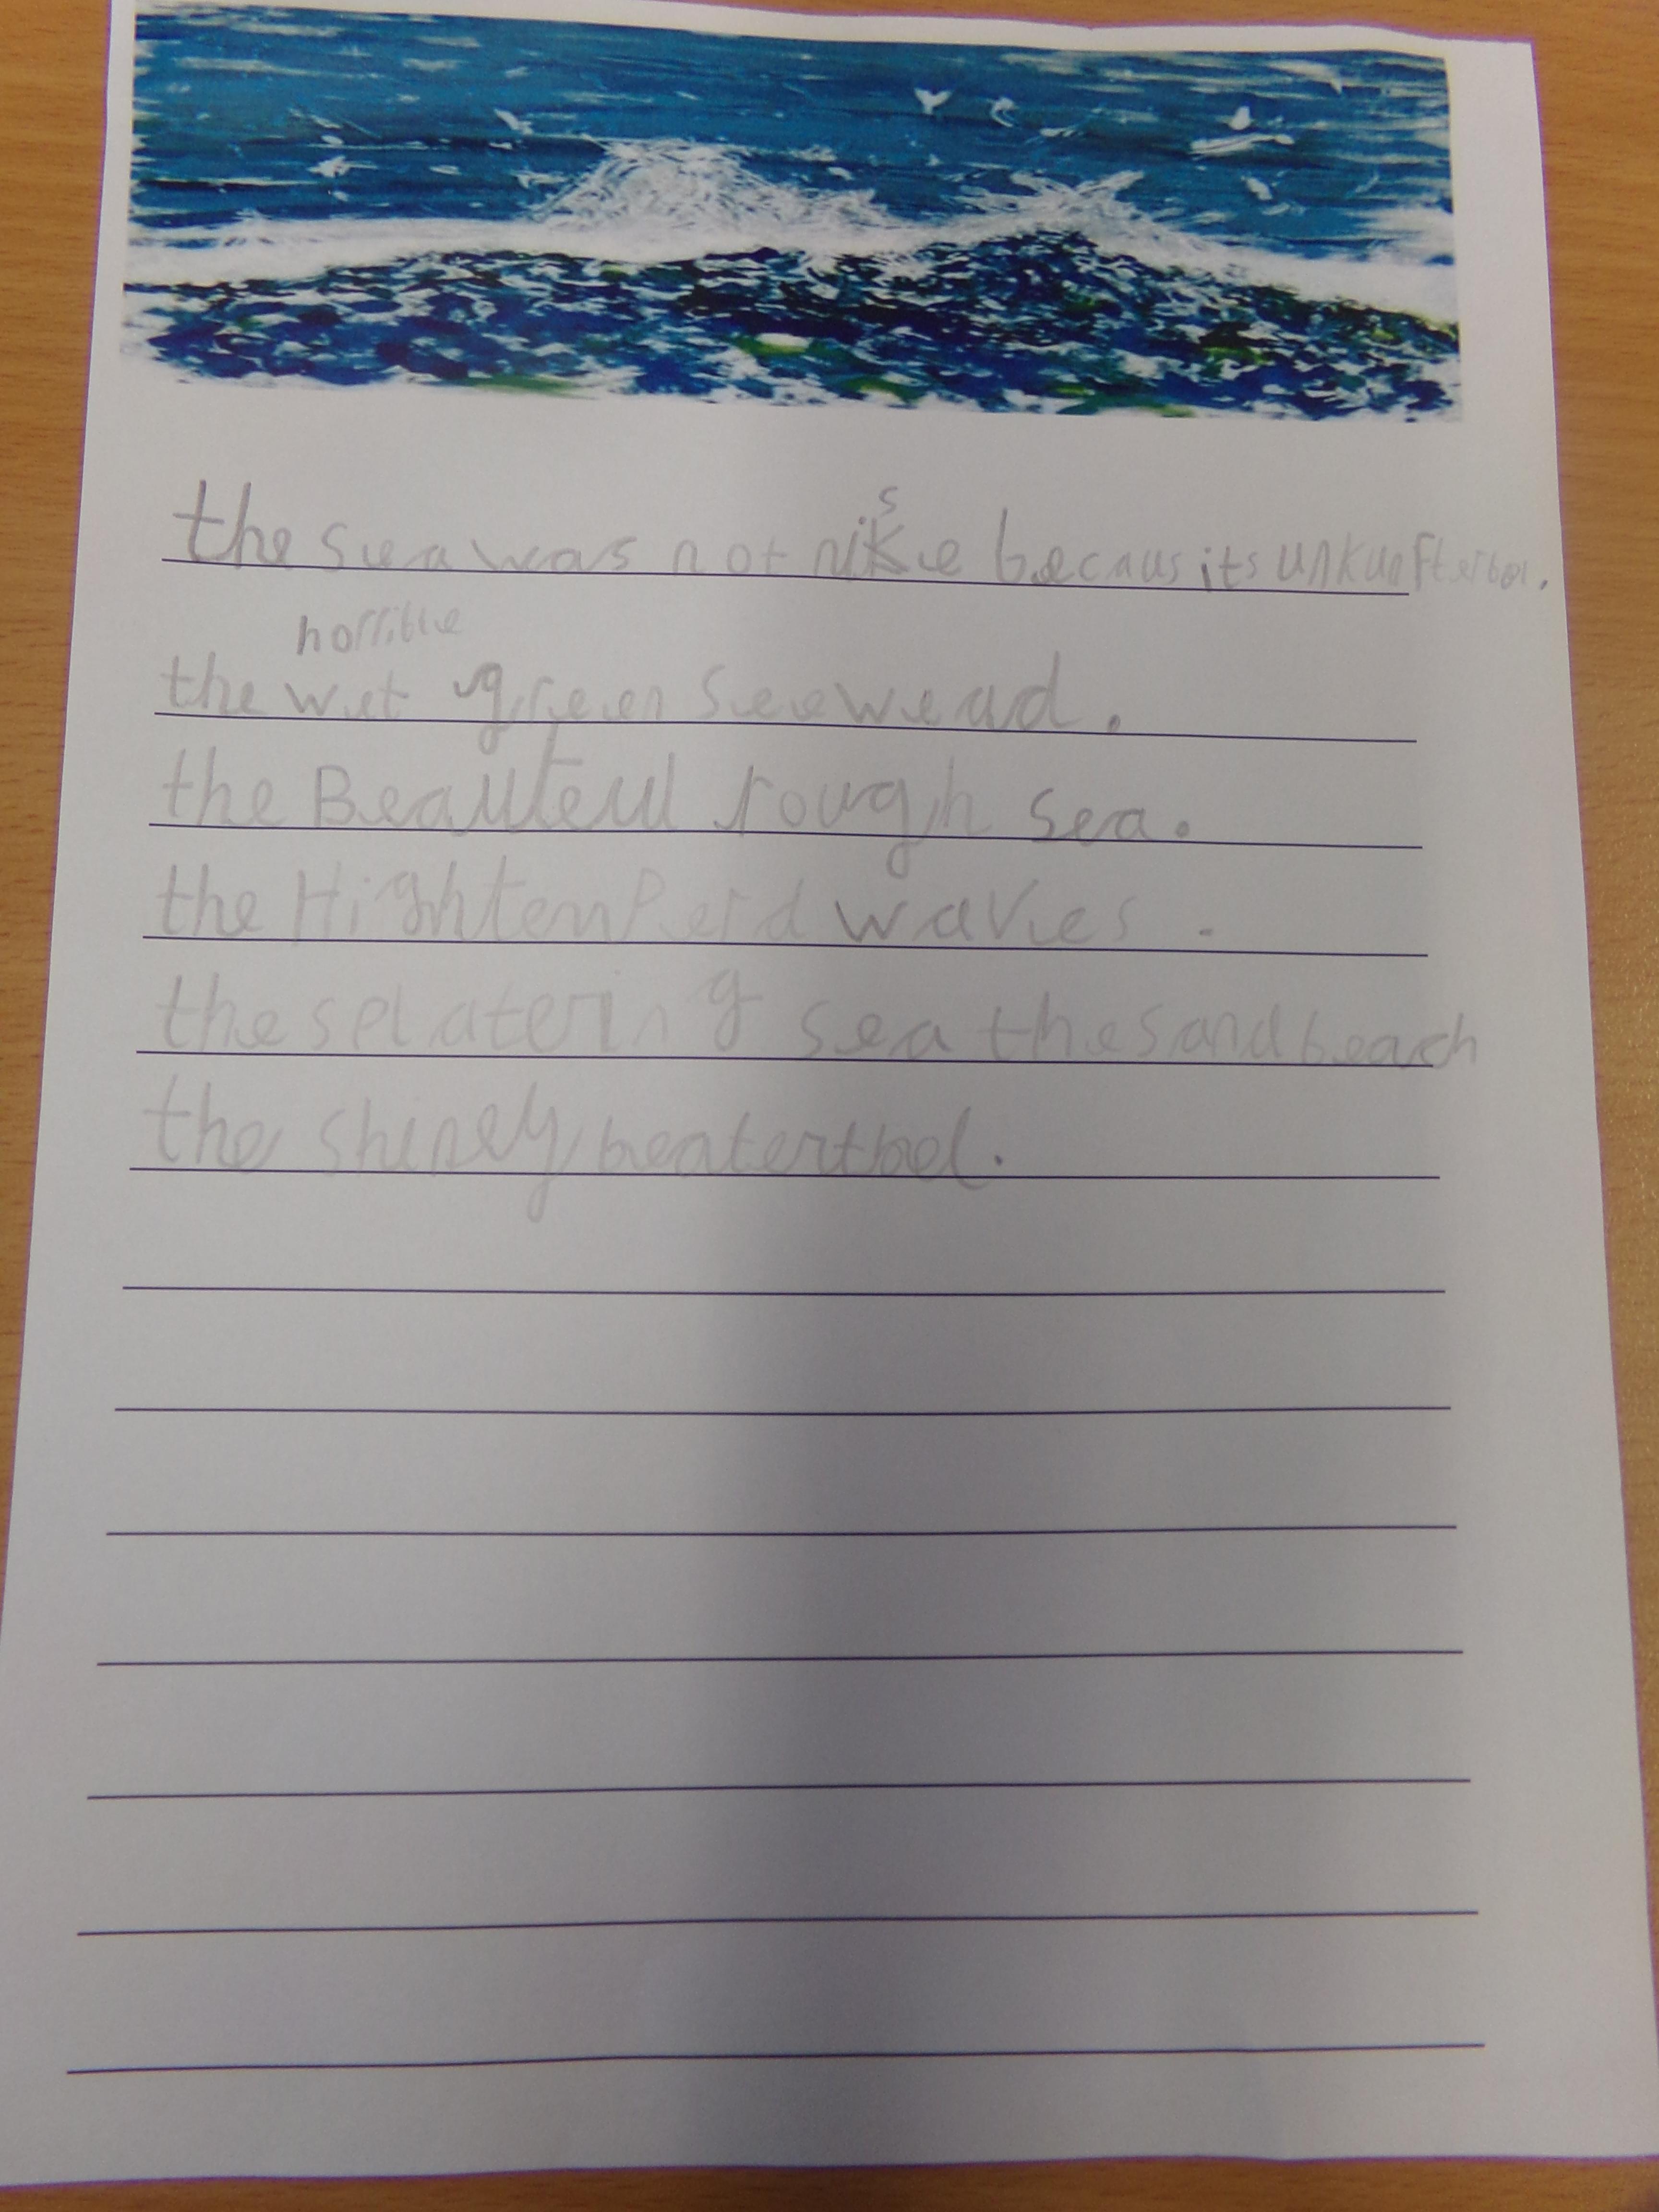 s
the sea was not nike becaus its unkunfterbol.
horrible
the wet green seewead.
the Beauteul rough sea.
the Hightemperd waves.
the splatering sea the sand beach
the shiney beaterthol.